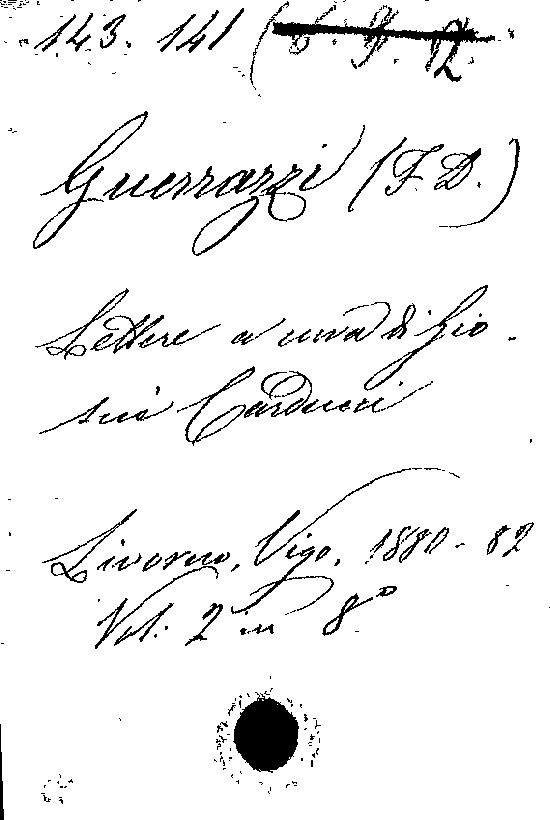 143. 141 (6. F. 12.
Guerrazzi (F. D.)
Lettere a cura di Gio-
suè Carducci
Livorno, Vigo, 1880-82
Vol: 2 in 8°